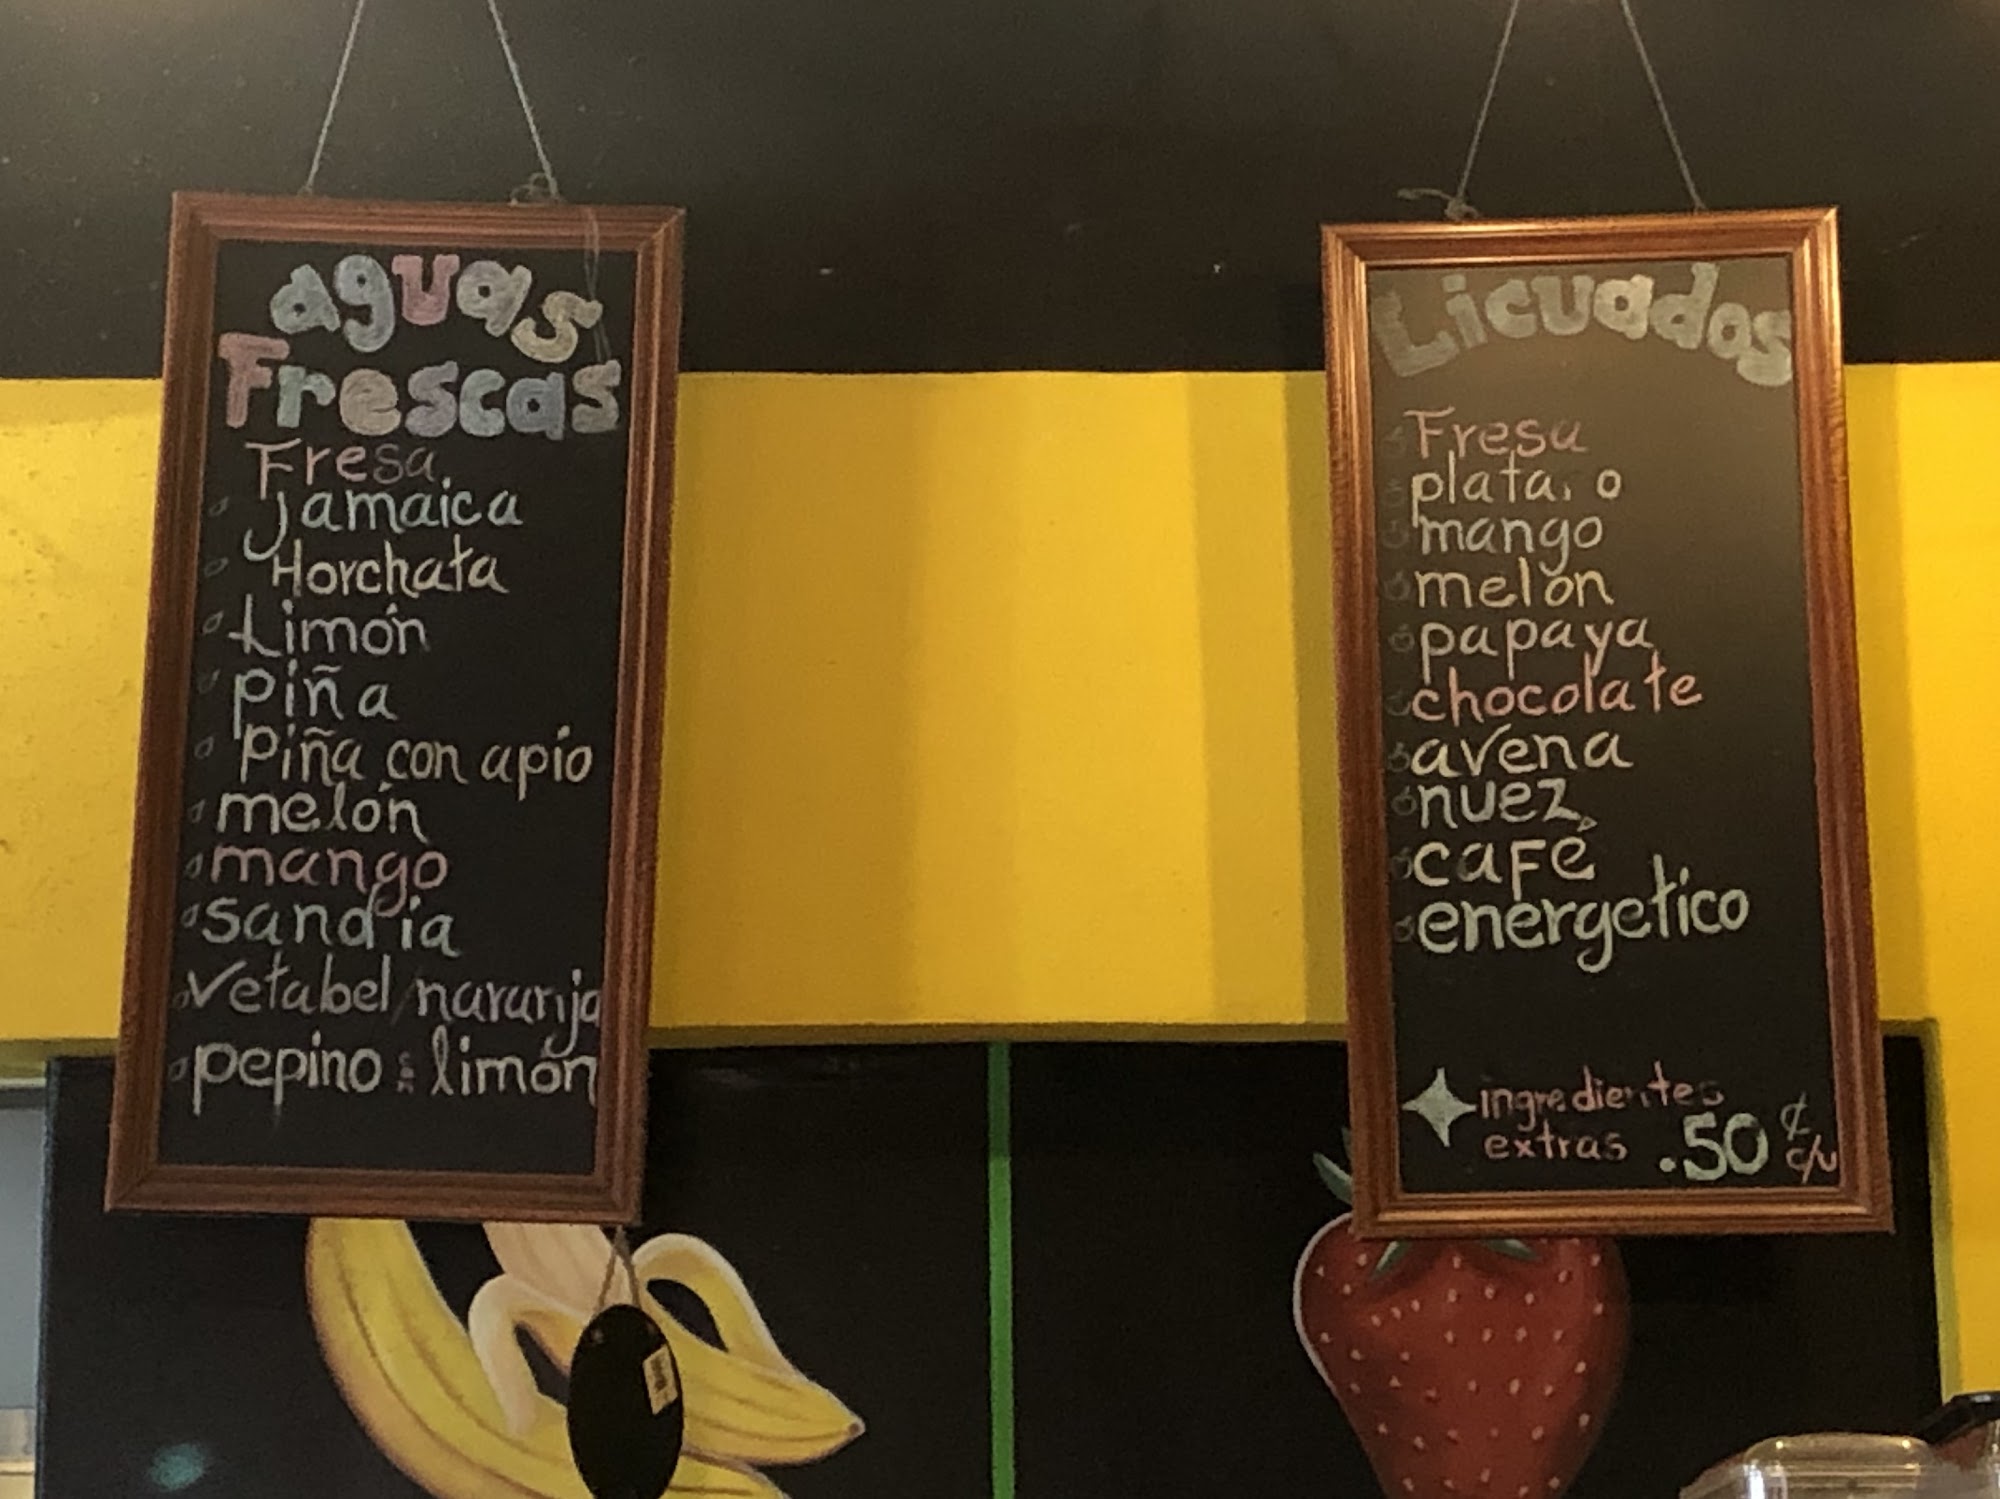 aguas
Frescas
Fresa
Jamaica
Horchata
Limón
piña
piña con apio
melón
mango
sandia
vetabel/naranja
pepino con limón
Licuados
Fresa
plata o
mango
melón
papaya
chocolate
avena
nuez
café
energetico
ingredientes
extras .50 ¢ c/u